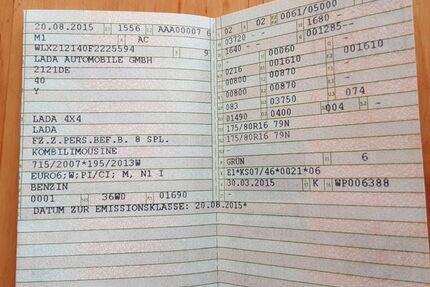 20.08.2015 1556 AAA00007 6
M1 AC
WLX212140F2225594 9
LADA AUTOMOBILE GMBH
2121DE
40
Y
LADA 4X4
LADA
FZ.Z.PERS.BEF.B. 8 SPL.
KOMBILIMOUSINE
715/2007*195/2013W
EURO6;W;PI/CI; M, N1 I
BENZIN
0001 36W0 01690
DATUM ZUR EMISSIONSKLASSE: 20.08.2015*
02 02 0061/05000
03720 -- 1680
1640 -- -- 001285--
00060 001610
0216 001610
00800 00870 --
00800 00870 --
083 03750 074
01490 0400 004 --
175/80R16 79N
175/80R16 79N
--
GRÜN 6
E1*KS07/46*0021*06
30.03.2015 K WP006388
--